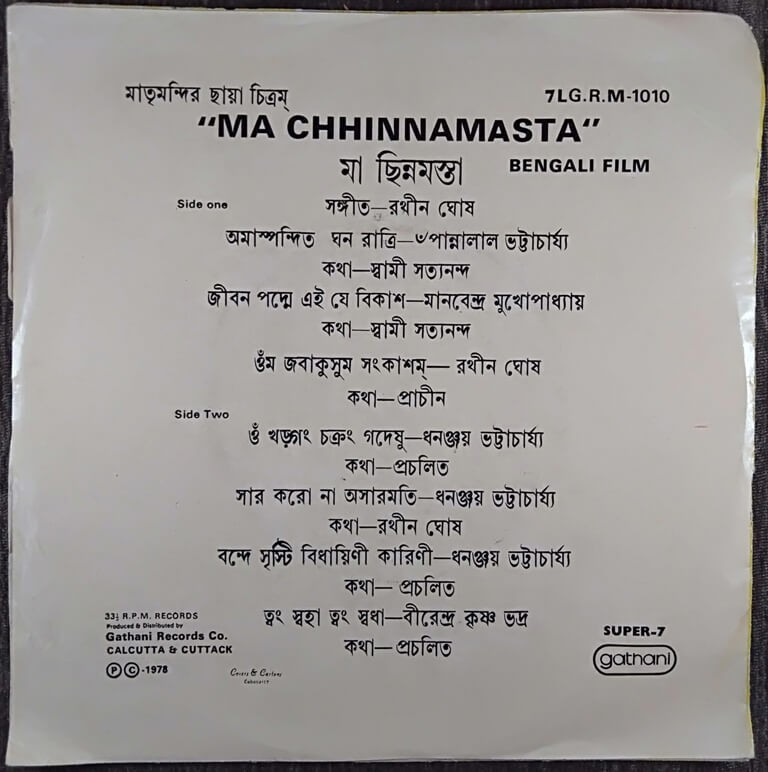 মাতৃমন্দির ছায়া চিত্রম্
7LG.R.M-1010
"MA CHHINNAMASTA"
মা ছিন্নমস্তা
BENGALI FILM
Side one
সঙ্গীত—রথীন ঘোষ
অমাস্পন্দিত ঘন রাত্রি—৺পান্নালাল ভট্টাচার্য্য
কথা—স্বামী সত্যানন্দ
জীবন পদ্মে এই যে বিকাশ—মানবেন্দ্র মুখোপাধ্যায়
কথা—স্বামী সত্যানন্দ
ওঁম জবাকুসুম সংকাশম্— রথীন ঘোষ
কথা—প্রাচীন
Side Two
ওঁ খড়্গং চক্রং গদেষু—ধনঞ্জয় ভট্টাচার্য্য
কথা—প্রচলিত
সার করো না অসারমতি—ধনঞ্জয় ভট্টাচার্য্য
কথা—রথীন ঘোষ
বন্দে সৃস্টি বিধায়িণী কারিণী—ধনঞ্জয় ভট্টাচার্য্য
কথা— প্রচলিত
ত্বং স্বহা ত্বং স্বধা—বীরেন্দ্র কৃষ্ণ ভদ্র
কথা— প্রচলিত
33⅓ R.P.M. RECORDS
Produced & Distributed by
Gathani Records Co.
CALCUTTA & CUTTACK
Ⓟ Ⓒ-1978
Covers & Cartons
SUPER-7
gathani